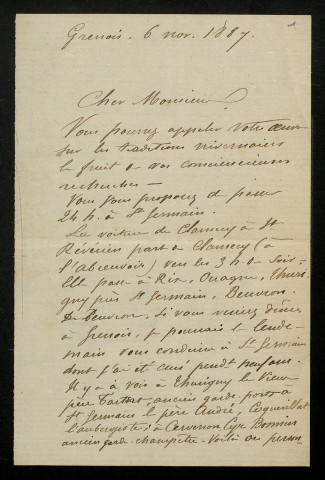 Grenois. 6 nov. 1887.
Cher Monsieur,
Vous pourrez appeler votre œuvre
sur les traditions nivernaises
le fruit de vos consciencieuses
recherches —
Vous vous proposez de passer
24 h. à St Germain.
La voiture de Clamecy à St
Révérien part à Clamecy (à
l'abreuvoir) vers les 3 h. de soir.
Elle passe à Rix, Ouagne, Thuri-
gny près St Germain, Beuvron.
De Beuvron, si vous veniez dîner
à Grenois, je pourrais le lende-
main vous conduire à St Germain
dont j'ai été curé pendt
Il y a à voir à Thurigny le vieux
père Tartrat, ancien garde-port; à
St Germain le père André, Coquillat
l'aubergiste; à Corvenon Cyr Bonnin
ancien garde-champêtre. Voilà de person-